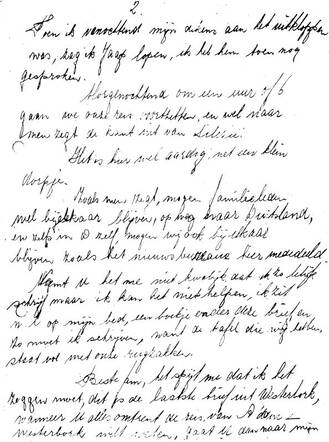 2.
Toen ik vanochtend mijn dekens aan het uitkloppen
was, zag ik Jaap lopen, ik heb hem toen nog
gesproken.
Morgenochtend om een uur of 6
gaan we onze reis voortzetten, en wel naar
men zegt de kant uit van Silezië.
Het is hier wel aardog, net een klein
dorpje.
Zoals men zegt, mogen familieleden
wel bij elkaar blijven, op weg naar Duitsland,
en zelfs in D zelf, mogen wij ook bij elkaar
blijven zoals het nieuws hier mededeeld
Neemt U het me niet kwalijk dat ik zo lelijk
schrijf maar ik kan het niet helpen, ik zit
n.l. op mijn bed, een boekje onder deze brief en
zo moet ik schrijven, want de tafel die wij hebben,
staat vol met onze rugzakken.
Beste het spijt me dat ik het
zeggen moet, dit is de laatste brief uit Westerbork,
wanneer U alles omtrent de reis van A dam -
Westerbork wilt weten, gaat U dan naar mijn